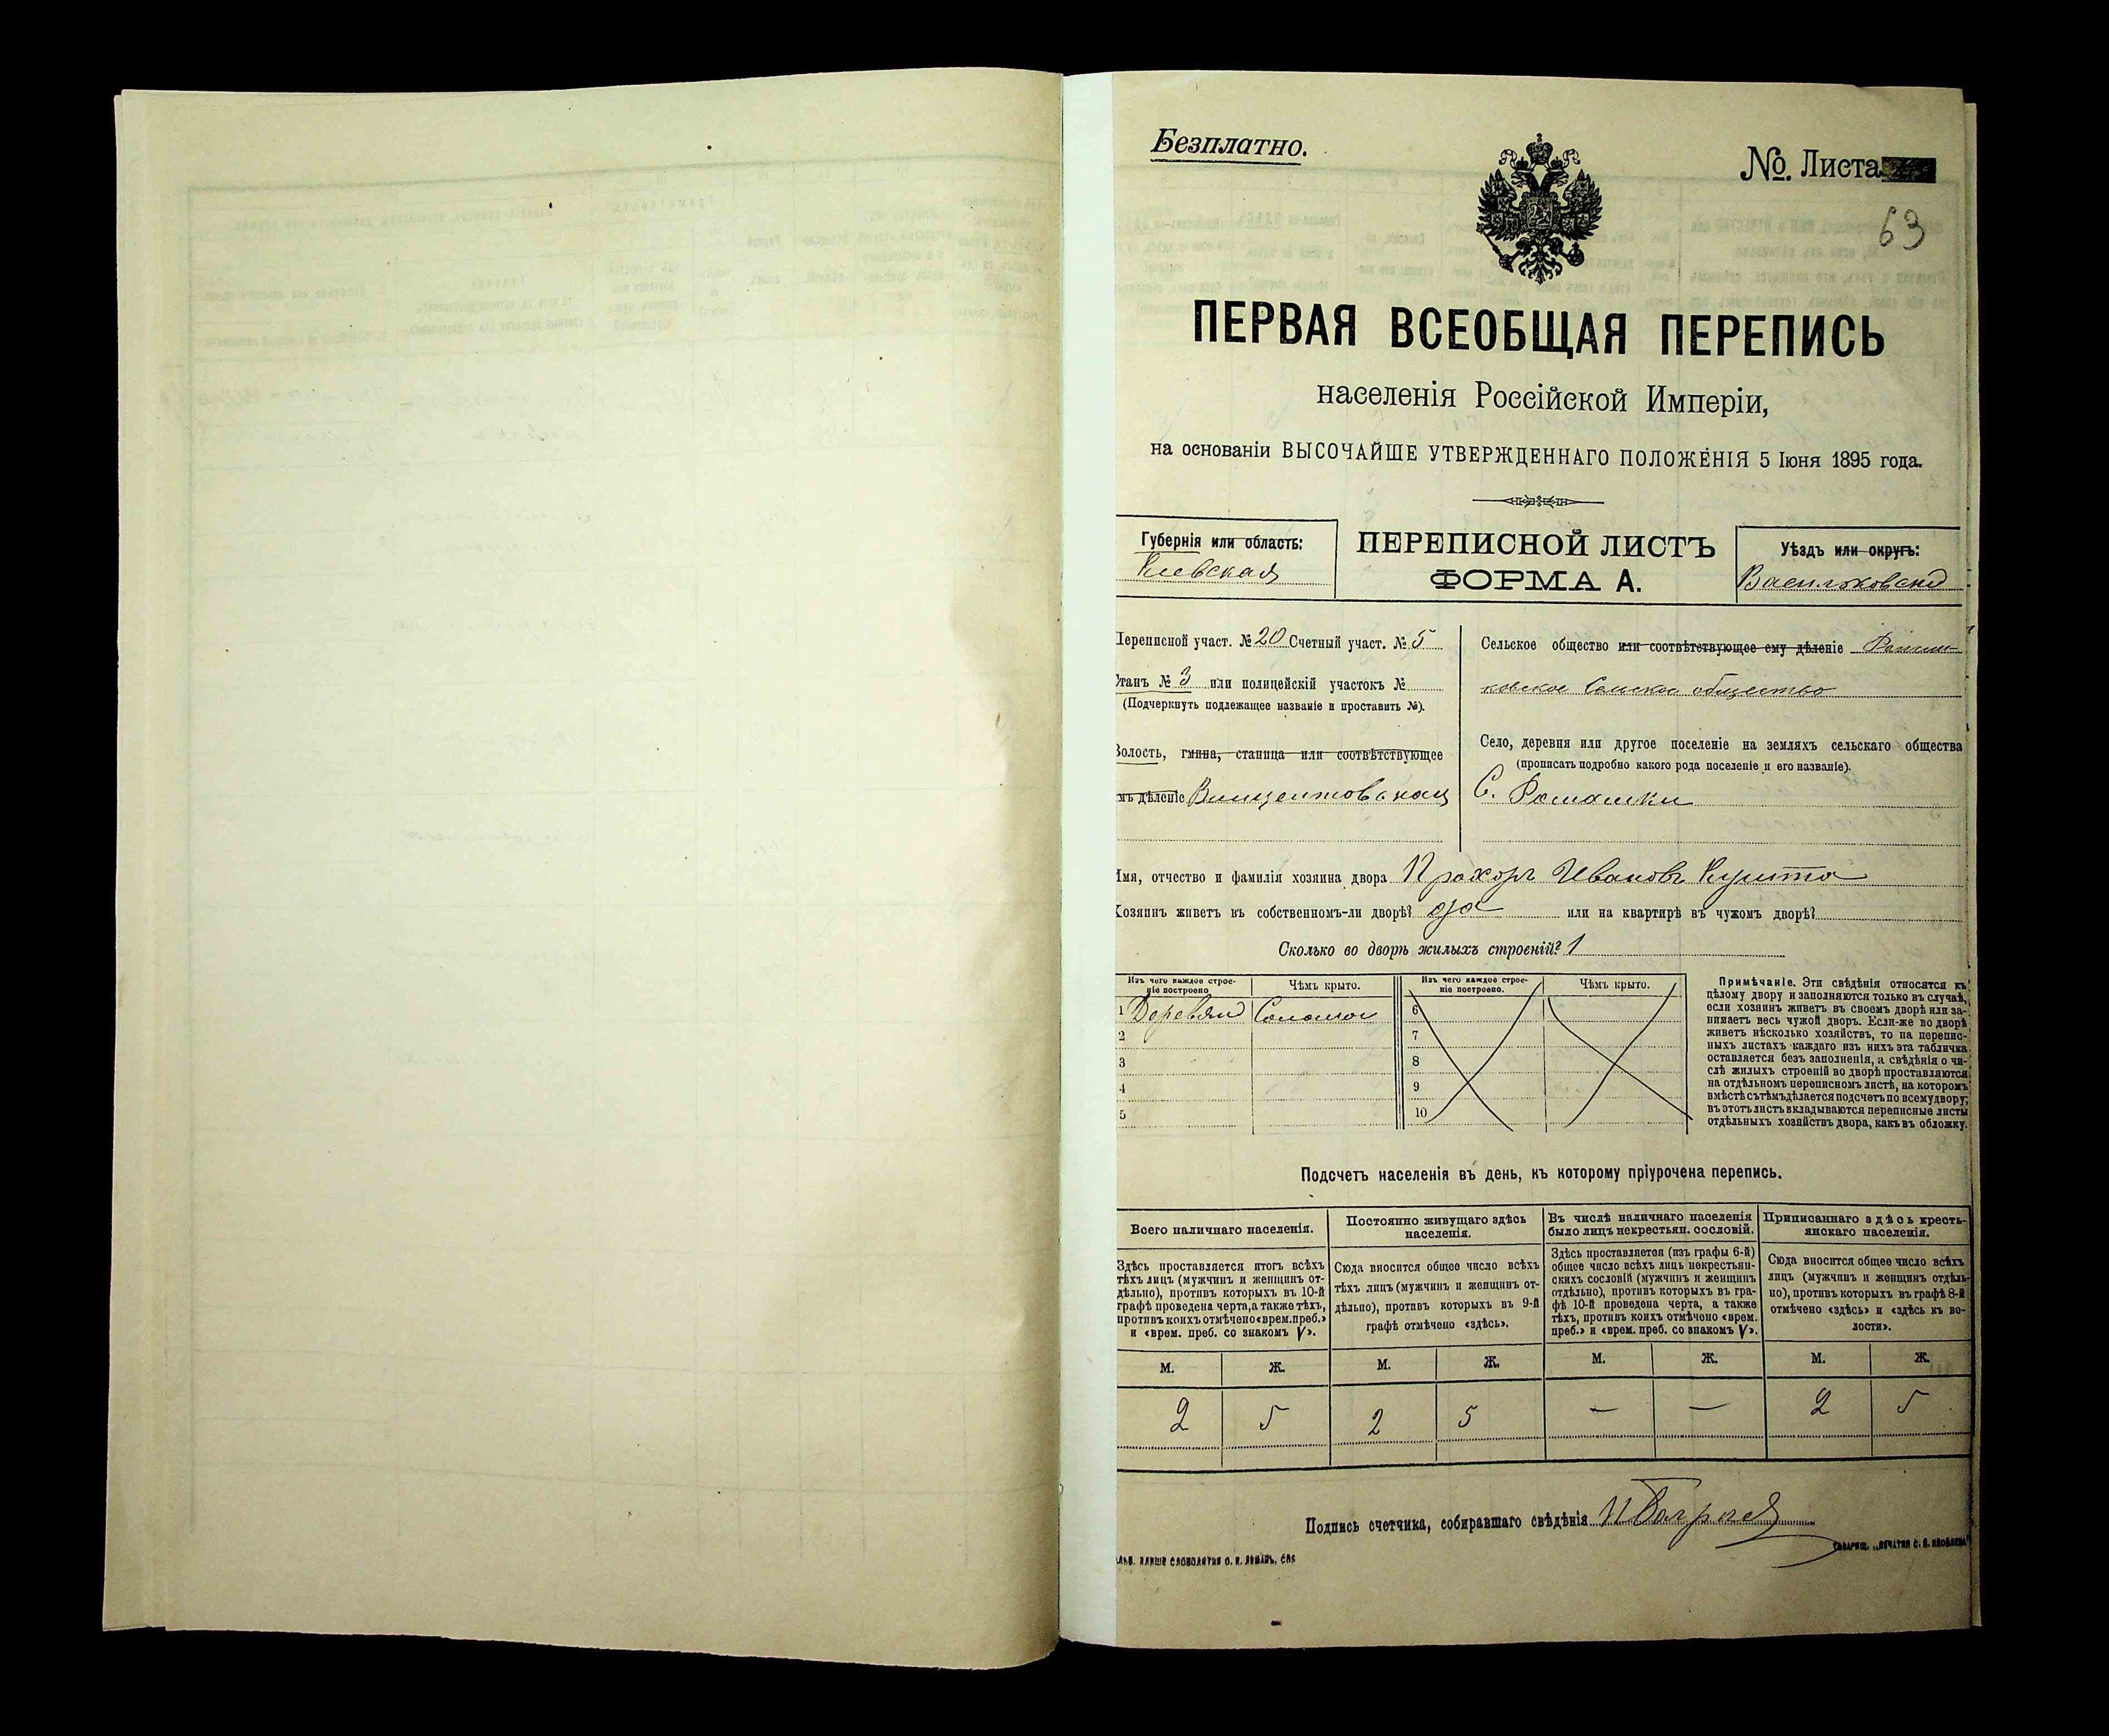 Безплатно.
№. Листа
63
ПЕРВАЯ ВСЕОБЩАЯ ПЕРЕПИСЬ
населенія Россійской Имперіи,
на основаніи ВЫСОЧАЙШЕ УТВЕРЖДЕННАГО ПОЛОЖЕНІЯ 5 Іюня 1895 года.
Губернія или область:
Кіевская
ПЕРЕПИСНОЙ ЛИСТЪ
ФОРМА А.
Уѣздъ или округъ:
Васильковскій
Переписной участ. № 20 Счетный участ. № 5
Станъ № 3 или полицейскій участокъ №
(Подчеркнуть подлежащее названіе и проставить №).
Волость, гмина, станица или соотвѣтствующее
имъ дѣленіе Винцентовская
Сельское общество или соотвѣтствующее ему дѣленіе Ромаш-
ковское Сельское общество
Село, деревня или другое поселеніе на земляхъ сельскаго общества
(прописать подробно какого рода поселеніе и его названіе).
С. Ромашки
Имя, отчество и фамилія хозяина двора Прохоръ Ивановъ
Хозяинъ живетъ въ собственномъ-ли дворѣ? да или на квартирѣ въ чужомъ дворѣ?
Сколько во дворѣ жилыхъ строеній? 1
Изъ чего каждое строе-
ніе построено
Чѣмъ крыто.
Изъ чего каждое строе-
ніе построено.
Чѣмъ крыто.
1 Деревян Соломой
2
3
4
5
6
7
8
9
10
Примѣчаніе. Эти свѣдѣнія относятся къ
цѣлому двору и заполняются только въ случаѣ,
если хозяинъ живетъ въ своемъ дворѣ или за-
нимаетъ весь чужой дворъ. Если-же во дворѣ
живетъ нѣсколько хозяйствъ, то на перепис-
ныхъ листахъ каждаго изъ нихъ эта табличка
оставляется безъ заполненія, а свѣдѣнія о чи-
слѣ жилыхъ строеній во дворѣ проставляются
на отдѣльномъ переписномъ листѣ, на которомъ
вмѣстѣ съ тѣмъ дѣлается подсчетъ по всему двору;
въ этотъ листъ вкладываются переписные листы
отдѣльныхъ хозяйствъ двора, какъ въ обложку.
Подсчетъ населенія въ день, къ которому пріурочена перепись.
Всего наличнаго населенія.
Здѣсь проставляется итогъ всѣхъ
тѣхъ лицъ (мужчинъ и женщинъ от-
дѣльно), противъ которыхъ въ 10-й
графѣ проведена черта, а также тѣхъ,
противъ коихъ отмѣчено «врем. преб.»
и «врем. преб. со знакомъ V».
Постоянно живущаго здѣсь
населенія.
Сюда вносится общее число всѣхъ
тѣхъ лицъ (мужчинъ и женщинъ от-
дѣльно), противъ которыхъ въ 9-й
графѣ отмѣчено «здѣсь».
Въ числѣ наличнаго населенія
было лицъ некрестьян. сословій.
Здѣсь проставляется (изъ графы 6-й)
общее число всѣхъ лицъ некрестьян-
скихъ сословій (мужчинъ и женщинъ
отдѣльно), противъ которыхъ въ гра-
фѣ 10-й проведена черта, а также
тѣхъ, противъ коихъ отмѣчено «врем.
преб.» и «врем. преб. со знакомъ V».
Приписаннаго здѣсь кресть-
янскаго населенія.
Сюда вносится общее число всѣхъ
лицъ (мужчинъ и женщинъ отдѣль-
но), противъ которыхъ въ графѣ 8-й
отмѣчено «здѣсь» и «здѣсь въ во-
лости».
М. Ж. М. Ж. М. Ж. М. Ж.
2 5 2 5 — — 2 5
Подпись счетчика, собиравшаго свѣдѣнія